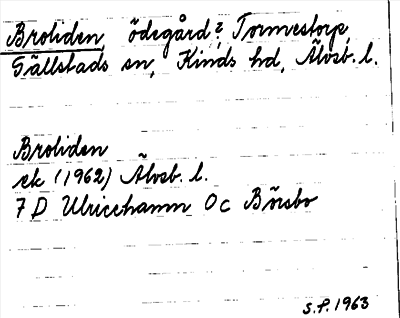 Broliden, ödegård? Tormestorp,
Gällstads sn, Kinds hd, Älvsb. l.
Broliden
ek (1962) Älvsb. l.
7 D Ulricehamn 0 c Börsbo
S.P. 1963